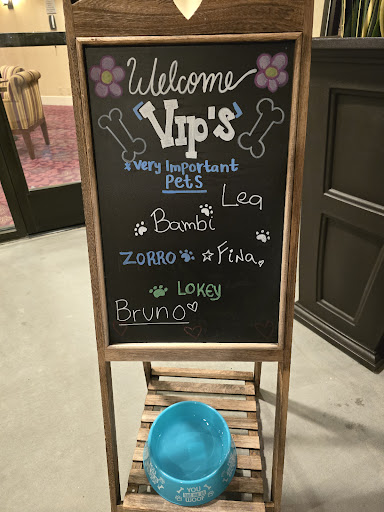 Welcome
"Vip's"
*very Important
Pets
Lea
Bambi
ZORRO ☆Fina
LOKEY
Bruno♡
YOU
WOOF